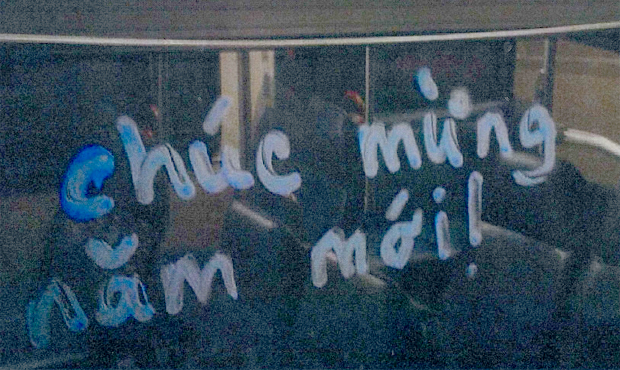 chúc mừng
năm mới!